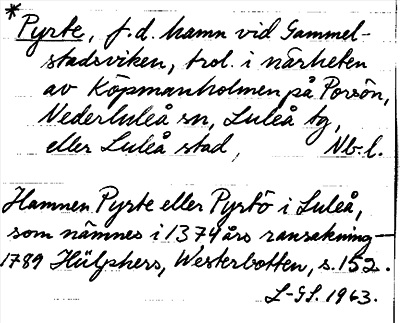 *Pyrte, f.d. hamn vid Gammel-
stadsviken, trol. i närheten
av Köpmanholmen på Porsön,
Nederluleå sn, Luleå tg,
eller Luleå stad, Nb. l.
Hamnen Pyrte eller Pyrtö i Luleå,
som nämnes i 1374 års ransakning—
1789 Hülphers, Westerbotten, s. 152.
L-GS. 1963.